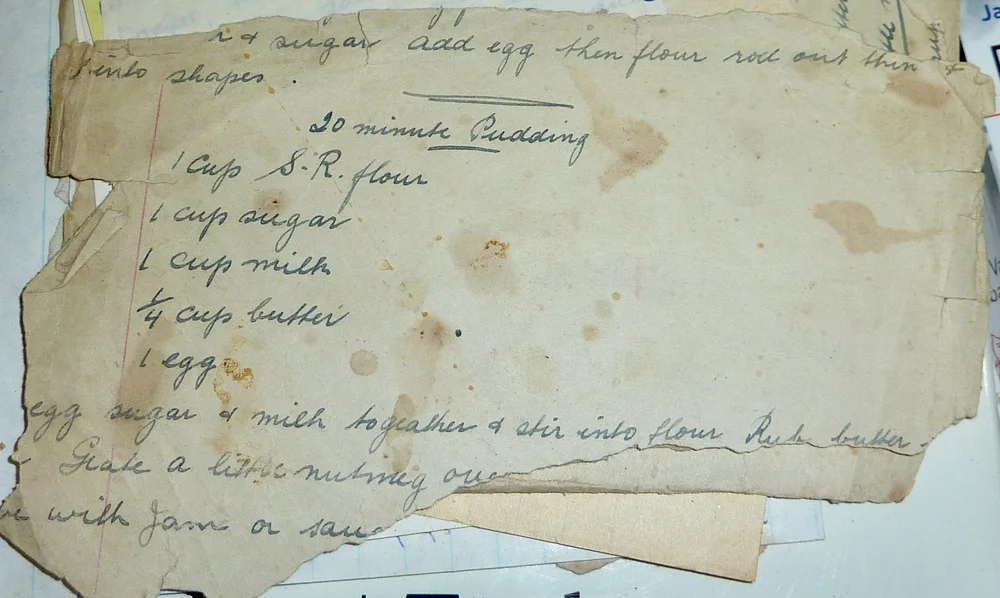 & sugar add egg then flour roll out thin &
into shapes.
20 minute Pudding
1 cup S.R. flour
1 cup sugar
1 cup milk
1/4 cup butter
1 egg
egg sugar & milk togeather & stir into flour Rub butter
Grate a little nutmeg over
with Jam or